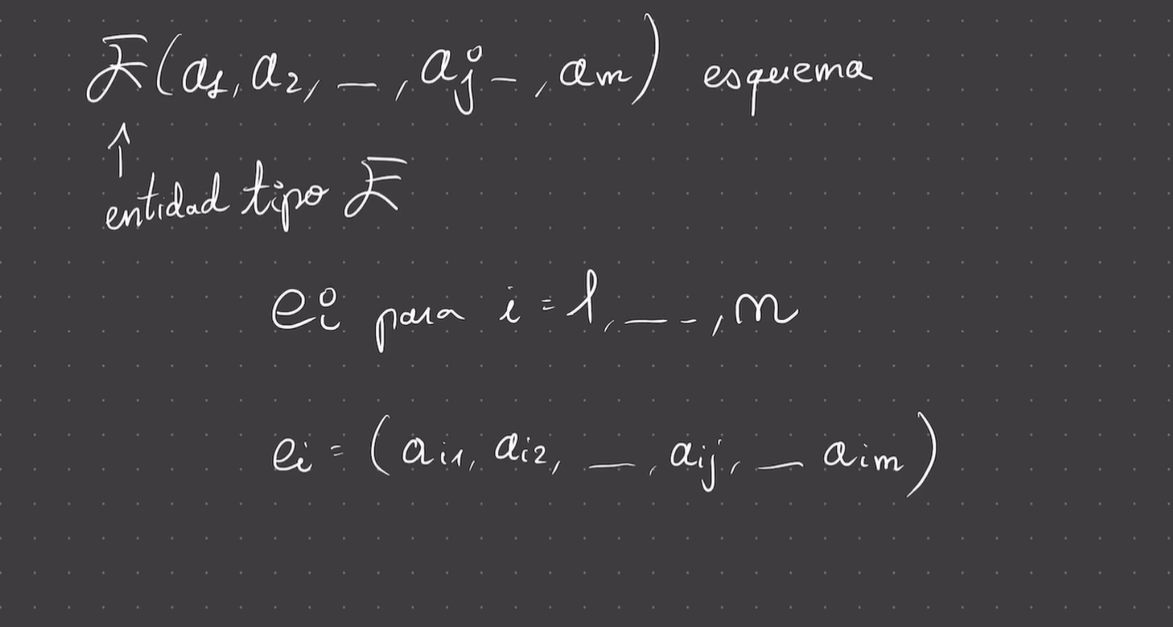 E(a1, a2, _, aj _, am) esquema
↑
entidad tipo E
ei para i = 1, _ _ _, n
ei = (ai1, ai2, _, aij, _ aim)